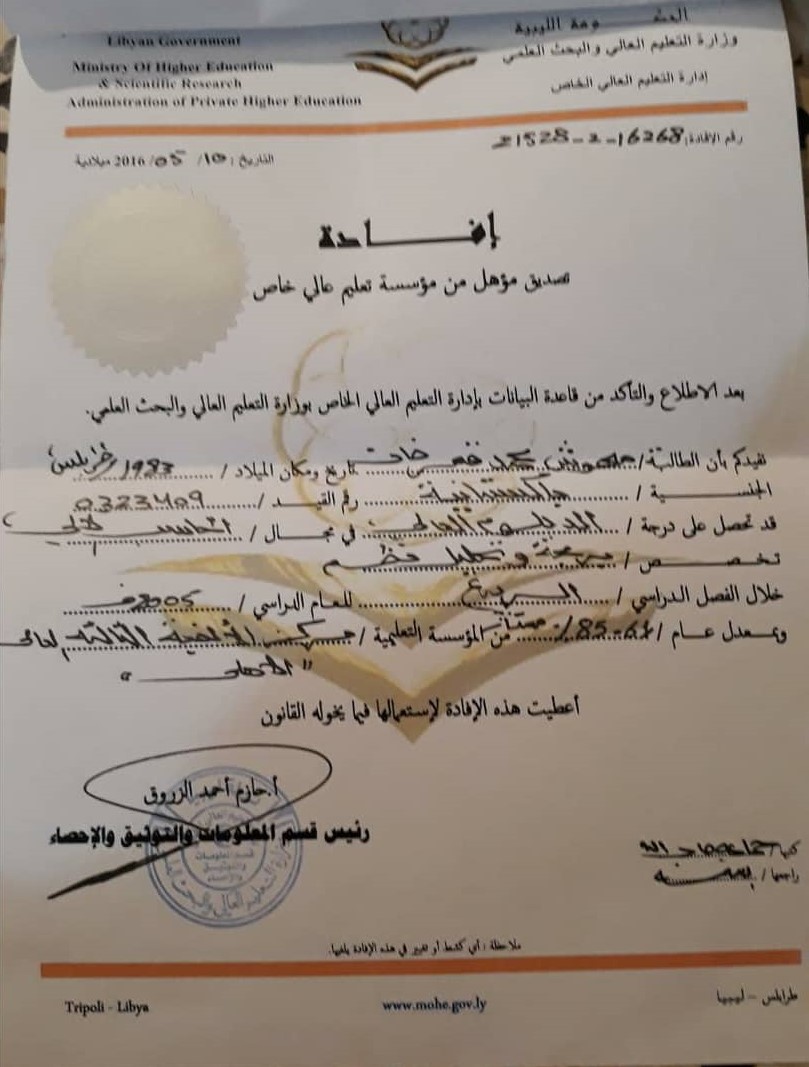 Libyan Government
Ministry Of Higher Education
& Scientific Research
Administration of Private Higher Education
الليبية
وزارة التعليم العالي والبحث العلمي
إدارة التعليم العالي الخاص
رقم الإفادة: 16268-2-21528
التاريخ : 10/ 05/ 2016 ميلادية
إفـــــــادة
تصديق مؤهل من مؤسسة تعليم عالي خاص
بعد الاطلاع والتأكد من قاعدة البيانات بإدارة التعليم العالي الخاص بوزارة التعليم العالي والبحث العلمي.
نفيدكم بأن الطالبة/ محمد خان تاريخ ومكان الميلاد / 1983
الجنسـية / باكستانية رقم القيـد / 0323409
قد تحصل على درجة / الدبلوم العالي في مجـال / الحاسب الآلي
تخـصـص / برمجة وتحليل نظم
خلال الفصل الدراسي / الربيع للعام الدراسي / 2005ف
وبمعدل عـام / 85.61% ممتاز من المؤسسة التعليمية / مركز الألفية الثالثة
أعطيت هذه الإفادة لإستعمالها فيما يخوله القانون
أ.حازم أحمد الزروق
رئيس قسم المعلومات والتوثيق والإحصاء
راجعها /
ملاحظة : أي كشط أو تغيير في هذه الإفادة يلغيها.
Tripoli - Libya
www.mohe.gov.ly
طرابلس - ليبيا